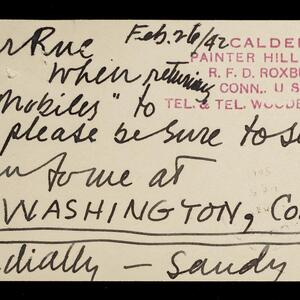 Rue Feb. 26/42
CALDER
PAINTER HILL
R. F. D. ROXB
CONN., U S
TEL. & TEL. WOODB
when returning
mobiles" to
please be sure to se
to me at
WASHINGTON, Co
dially — Sandy